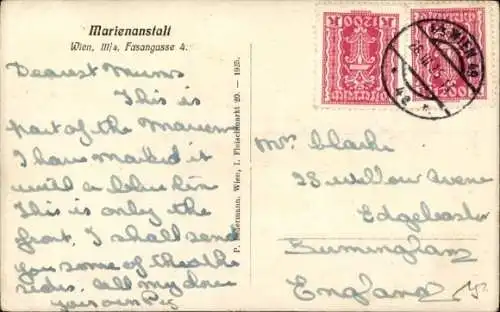 Marienanstalt
Wien, III/4, Fasangasse 4.
Dearest Mums
This is
part of the Marien
I have marked it
with a blue
This is only the
front. I shall send
you some of the other
sides. All my love
your own Peg
P. Ledermann, Wien, I. Fleischmarkt 20. — 1925.
1200 K
1200
WIEN
Mrs Clarke
38 Willow Avenue
Edgbaston
Birmingham
England